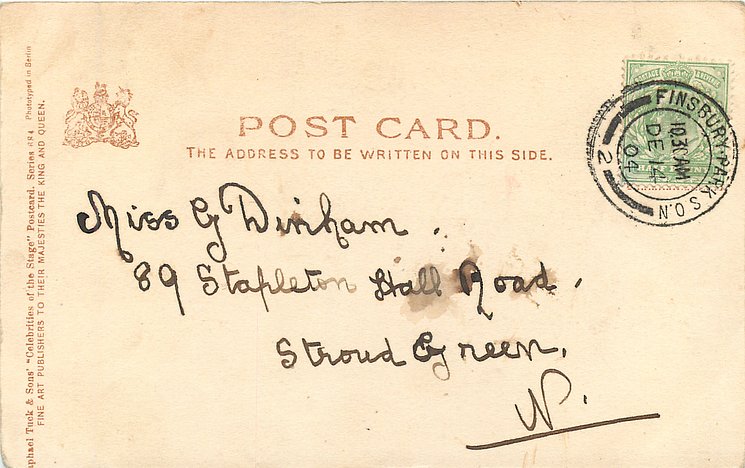 POST CARD.
THE ADDRESS TO BE WRITTEN ON THIS SIDE.
Miss G Dinham.
89 Stapleton Hall Road.
Stroud Green.
N.
FINSBURY PARK S.O.N.
10.30AM
DE 14
04
2
phael Tuck & Sons' "Celebrities of the Stage" Postcard. Series 684 Phototyped in Berlin
FINE ART PUBLISHERS TO THEIR MAJESTIES THE KING AND QUEEN.